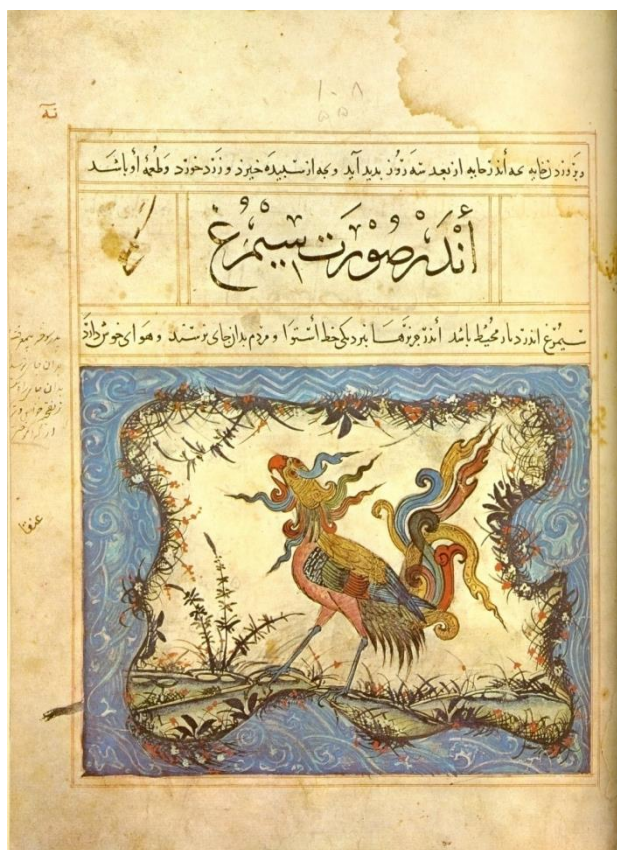 نه
١٠٨
٥٥
خایه بجه أندر خایه از بعد سه روز بدید آید و بجه از سبیده خیزد و زرد خورد و طعمهٔ أو باشد
أندر صورت سیمرغ
سیمرغ اندر دیار محیط باشد أندر جزیرها بنزدیکی خط أستوا و مردم بدان جای نرسند و هوای خوش دارد
عنقا